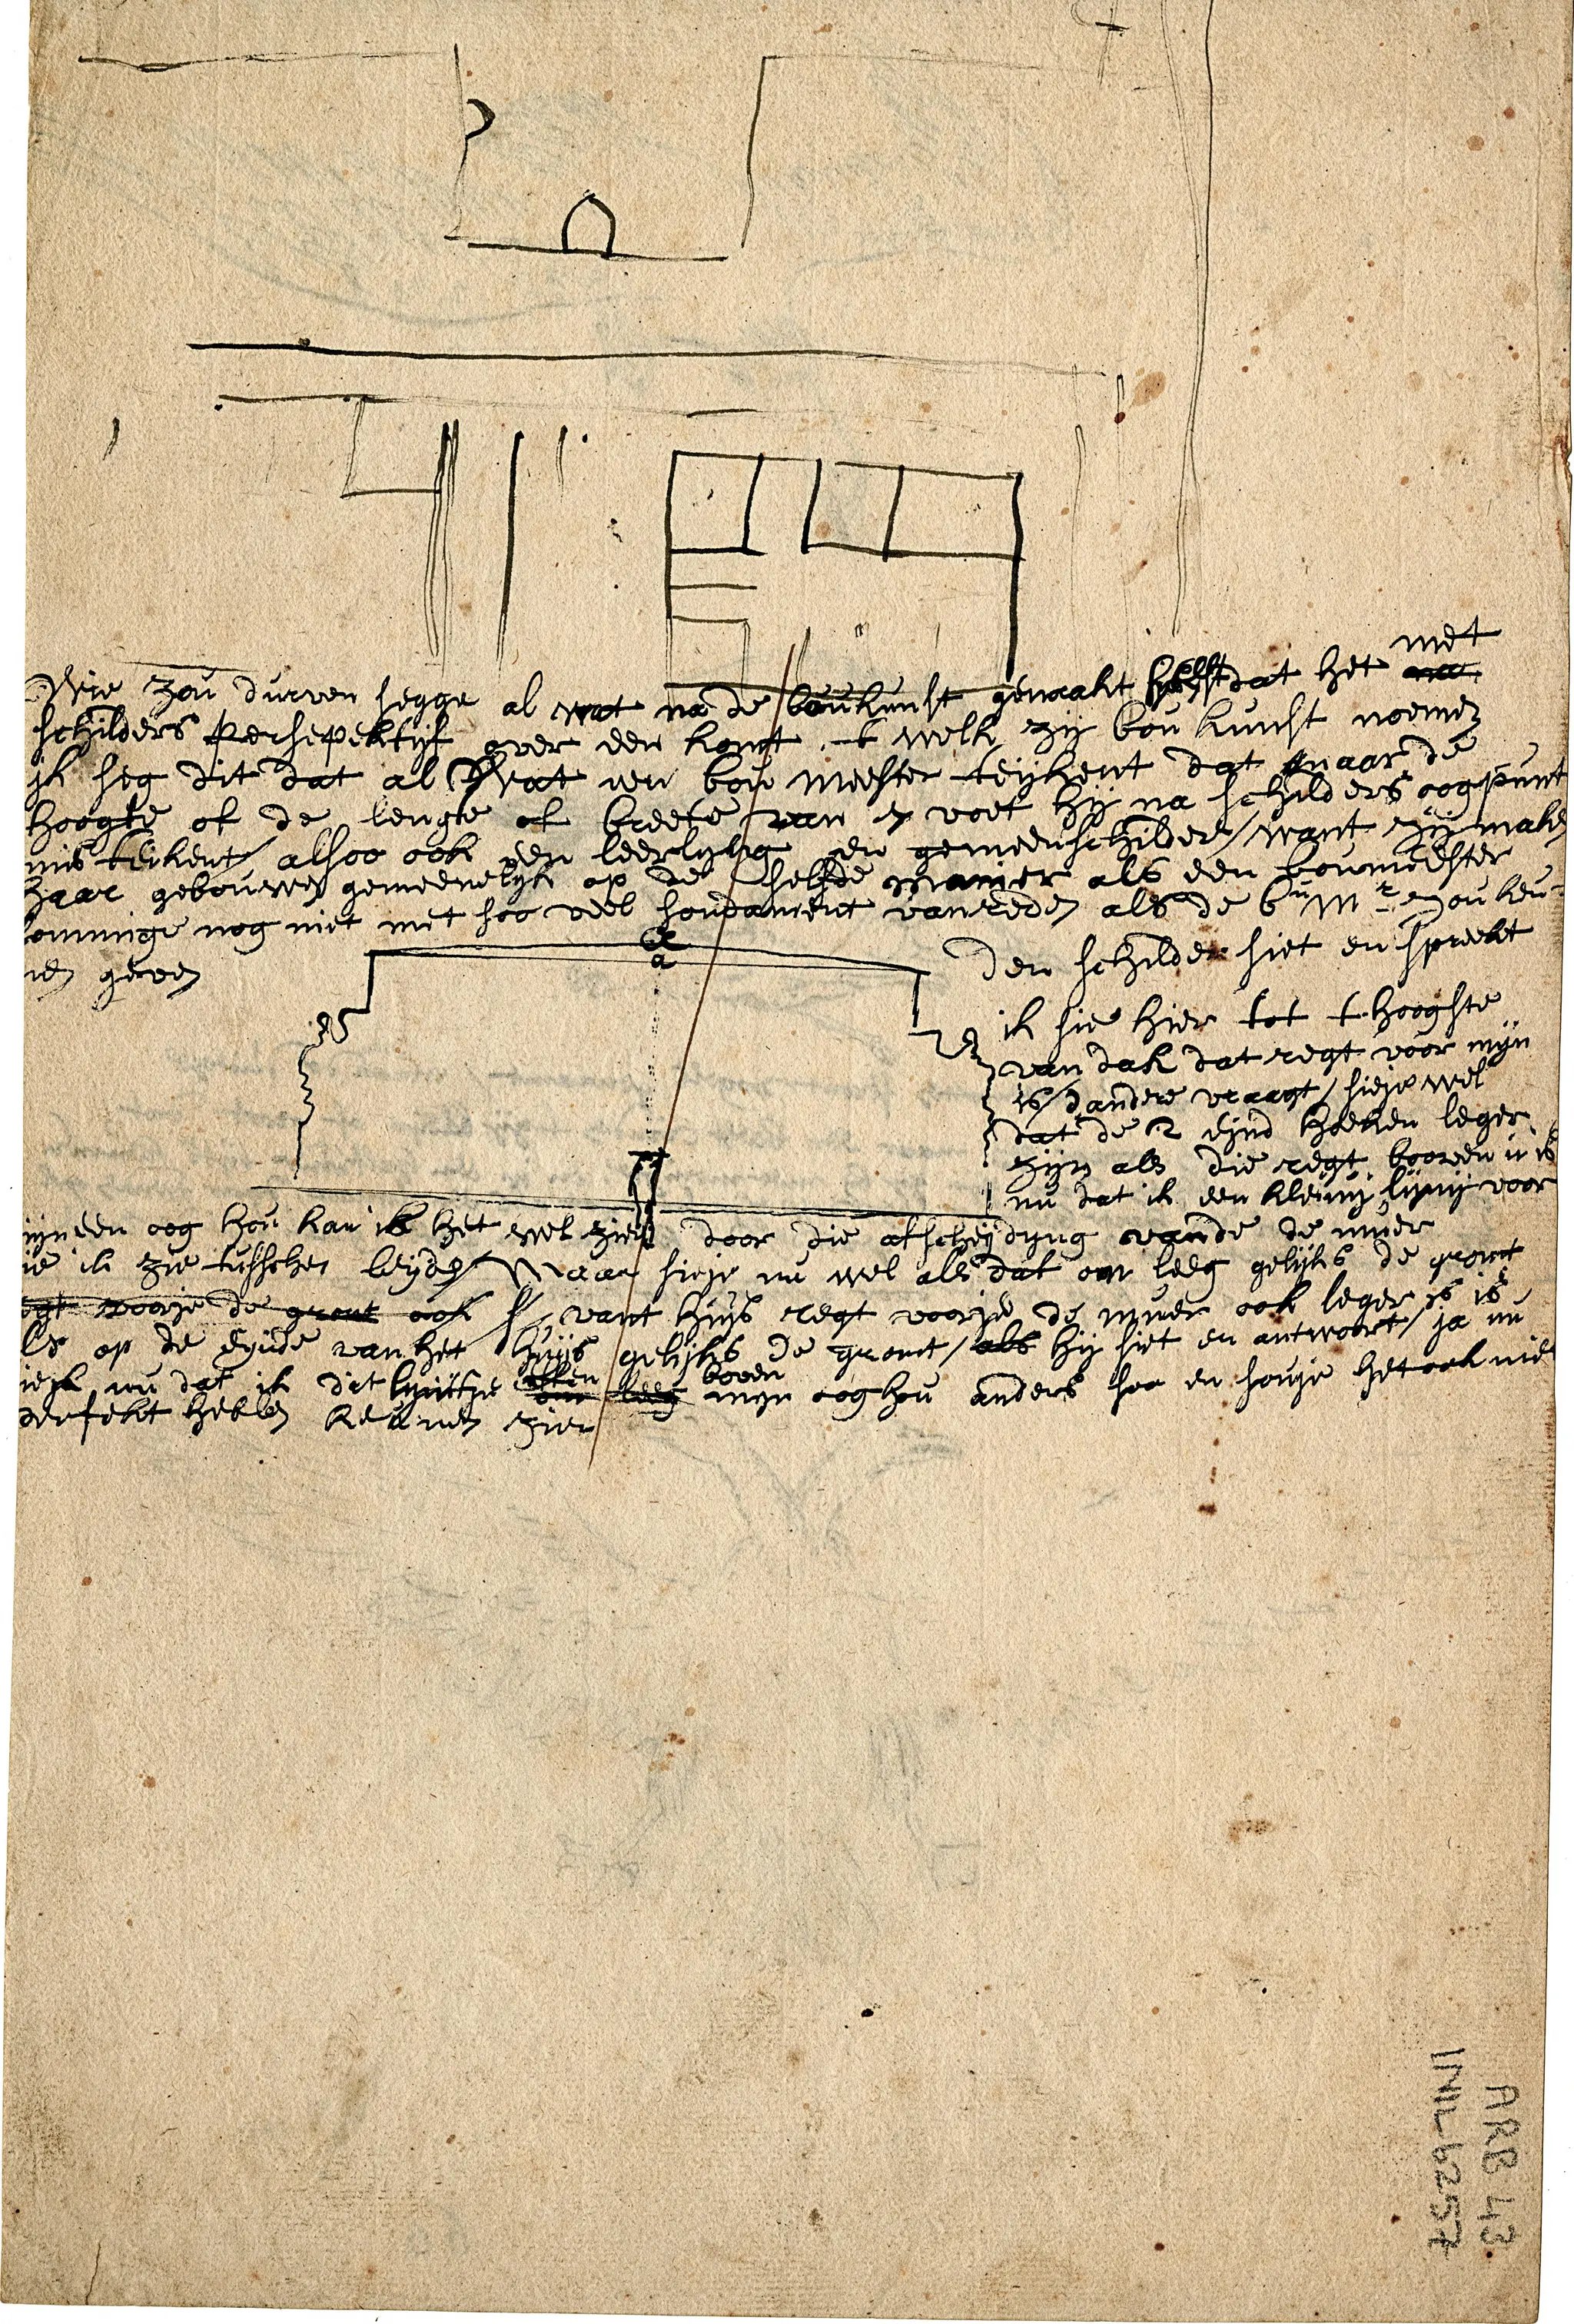 met
Wie zou durven segge al wat na de boukunst gemaakt dat het
schilders persepektijf over een komt t welk zij bou kunst noemen
ik seg dit dat al Wat een bou meester teijkent dat naar de
hoogte of de lengte of breete van voet hij na schilders oogpunt
mis teikent / alsoo ook een leerlyng en gemeenschilder / want zij maken
haar gebouwen gemeenelyk op de selfde manier als een boumeester
sommige nog niet met soo veel fondament van reden als de bu Mr zou keu-
nen geven
a
Den schilder siet en spreekt
ik sie hier tot t hoogste
van dak dat regt voor mijn
is / dandere vraagt / sieje wel
dat de 2 eijnd hoeken leger
zijn als die regt booven u is
nu dat ik een kleinij lynij voor
mijn een oog hou kan ik het wel zien door die afscheijdyng vande de muer
die ik zie tusschen beyde / Maar sieje nu wel als dat om leeg gelijks de gront
regt voorje de gront ook vant huys regt voorje de muer ook leger is is
als op de eynde van het huijs gelijks de gront / als hij siet en antwoort / ja nu
siek nu dat ik dit lynitje om leeg booven mijn oog hou anders soo en souje het ook niet
perfekt hebben keunnen zien
ARB 43
INIL 6257